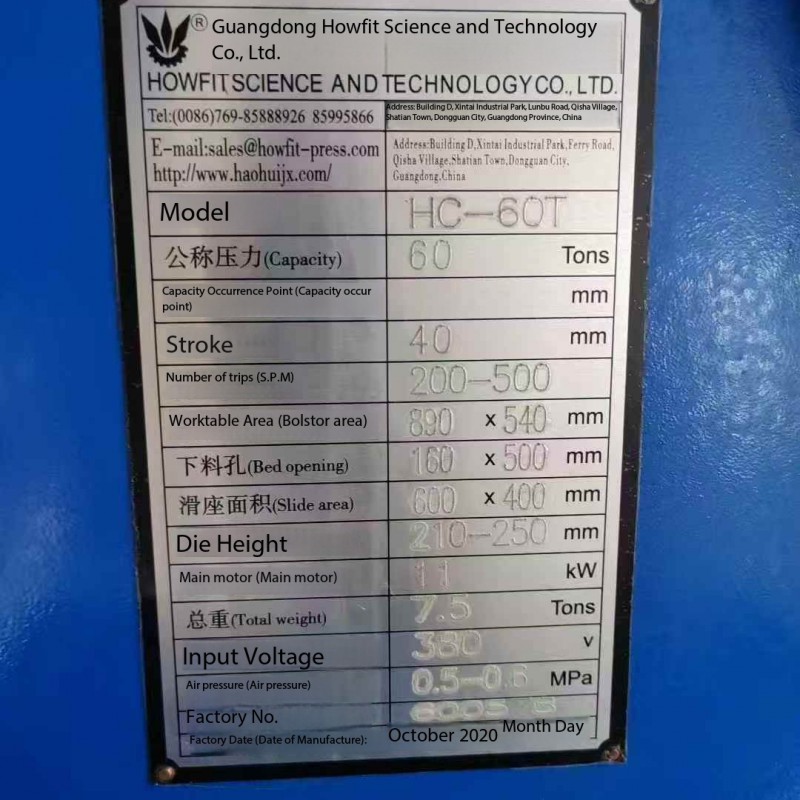 ® Guangdong Howfit Science and Technology
Co., Ltd.
HOWFIT SCIENCE AND TECHNOLOGY CO., LTD.
Tel:(0086)769-85888926 85995866
Address: Building D, Xintai Industrial Park, Lunbu Road, Qisha Village,
Shatian Town, Dongguan City, Guangdong Province, China
E-mail:sales@howfit-press.com
http://www.haohuijx.com/
Address:Building D,Xintai Industrial Park,Ferry Road,
Qisha Village,Shatian Town,Dongguan City,
Guangdong,China
Model HC-60T
公称压力(Capacity) 60 Tons
Capacity Occurrence Point (Capacity occur
point) mm
Stroke 40 mm
Number of trips (S.P.M) 200-500
Worktable Area (Bolstor area) 890 x 540 mm
下料孔(Bed opening) 160 x 500 mm
滑座面积(Slide area) 600 x 400 mm
Die Height 210-250 mm
Main motor (Main motor) 11 kW
总重(Total weight) 7.5 Tons
Input Voltage 380 v
Air pressure (Air pressure) 0.5-0.6 MPa
Factory No.
Factory Date (Date of Manufacture): October 2020 Month Day